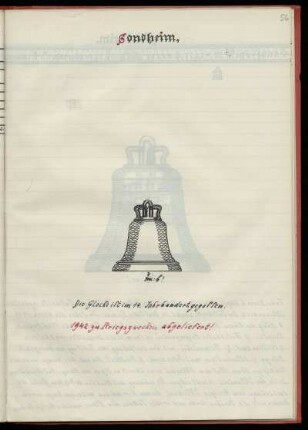 56
Sondheim.
Die Glocke ist im 14. Jahrhundert gegossen.
1942 zu Kriegszwecken abgeliefert!